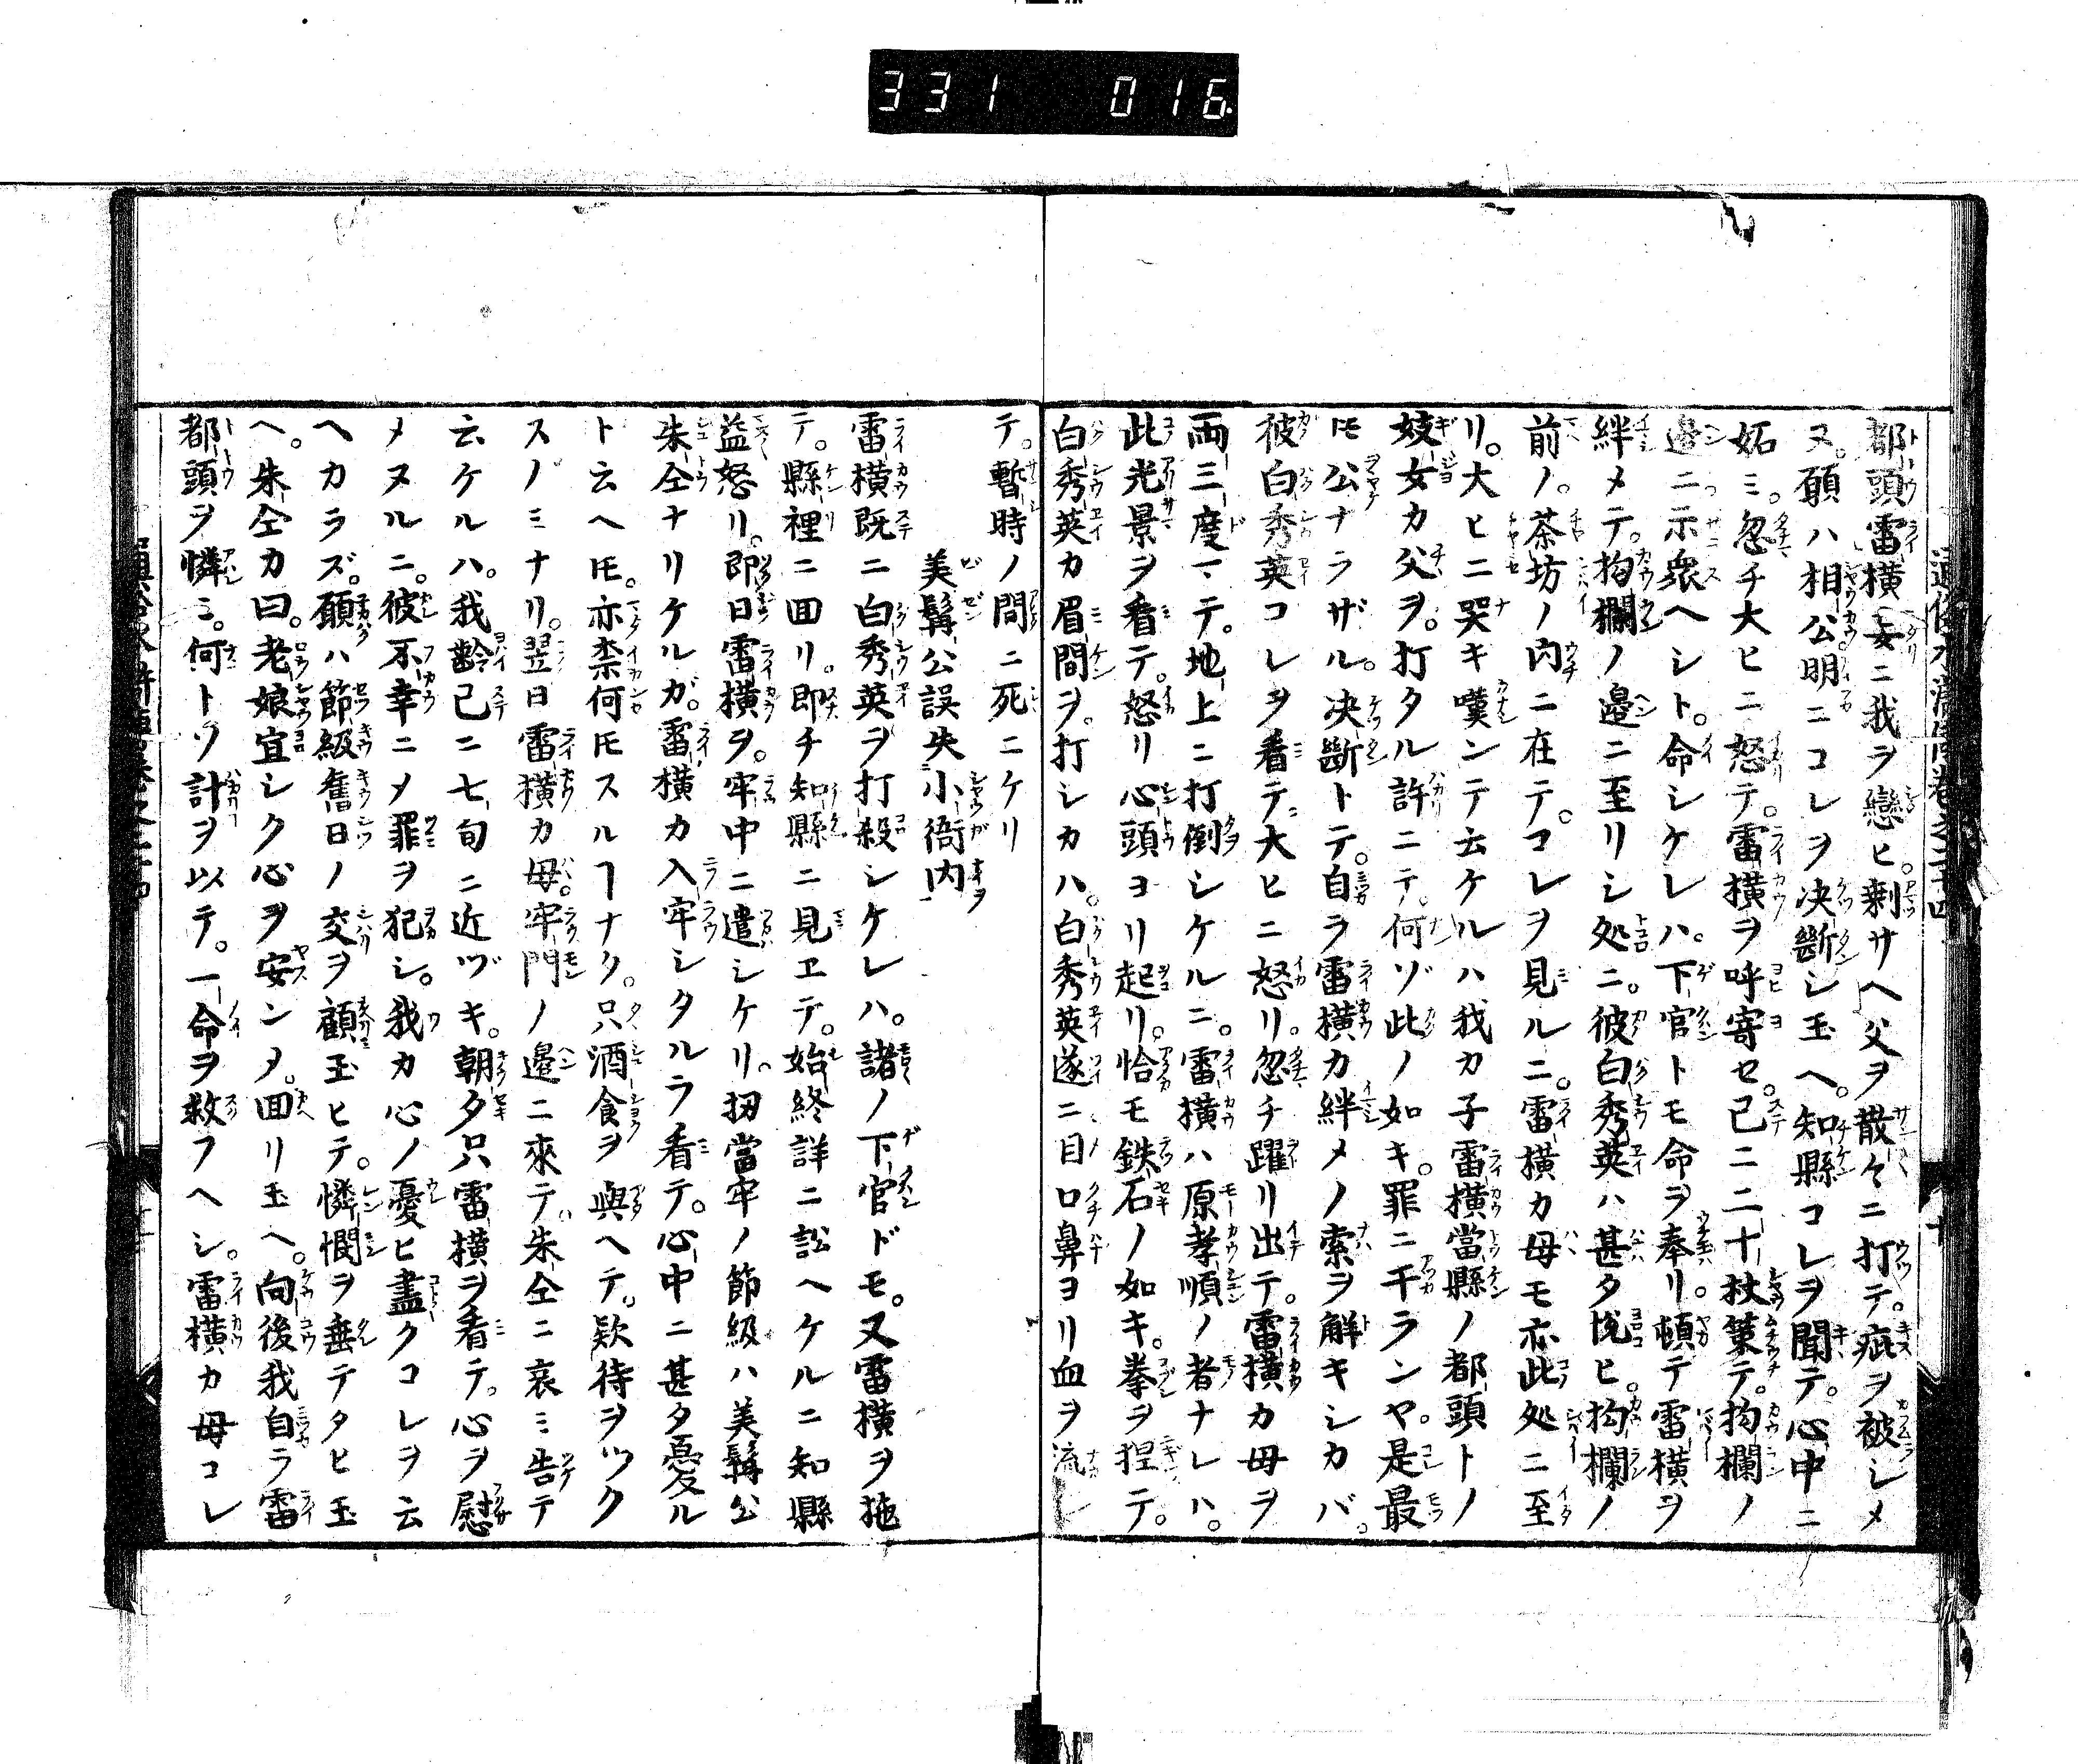 331 016
都頭雷横妄ニ我ヲ戀ヒ。剰サヘ父ヲ散々ニ打テ。疵ヲ被シメ
ヌ。願ハ相公明ニコレヲ决斷シ玉ヘ。知縣コレヲ聞テ。心中ニ
妬ミ。忽チ大ヒニ怒テ。雷横ヲ呼寄セ。已ニ二十杖策テ。拘欄ノ
邉ニ示衆ヘシト。命シケレハ。下官トモ命ヲ奉リ。頓テ雷横ヲ
絆メテ。拘欄ノ邉ニ至リシ処ニ。彼白秀英ハ甚タ悦ヒ。拘欄ノ
前ノ。茶坊ノ内ニ在テ。コレヲ見ルニ。雷横カ母モ亦此処ニ至
リ。大ヒニ哭キ嘆ンテ云ケルハ我カ子雷横當縣ノ都頭トノ
妓女カ父ヲ。打タル許ニテ。何ゾ此ノ如キ。罪ニ干ランヤ。是最
モ公ナラザル。决斷トテ。自ラ雷横カ絆メノ索ヲ解キシカバ。
彼白秀英コレヲ看テ大ヒニ怒リ。忽チ躍リ出テ。雷横カ母ヲ
両三度マテ。地上ニ打倒シケルニ。雷横ハ原孝順ノ者ナレハ。
此光景ヲ看テ。怒リ心頭ヨリ起リ。恰モ鉄石ノ如キ。拳ヲ捏テ。
白秀英カ眉間ヲ。打シカハ。白秀英遂ニ目口鼻ヨリ血ヲ流シ
テ。暫時ノ間ニ死ニケリ
美髯公誤失小衙内
雷横既ニ白秀英ヲ打殺シケレハ。諸ノ下官ドモ。又雷横ヲ拖
テ。縣裡ニ回リ。即チ知縣ニ見ヱテ。始終詳ニ訟ヘケルニ知縣
益怒リ。即日雷横ヲ。牢中ニ遣シケリ。扨當牢ノ節級ハ美髯公
朱仝ナリケルガ。雷横カ入牢シタルヲ看テ。心中ニ甚タ憂ル
ト云ヘ𪜈。亦柰何𪜈スルヿナク。只酒食ヲ與ヘテ。欵待ヲツク
スノミナリ。翌日雷横カ母。牢門ノ邉ニ來テ。朱仝ニ哀ミ告テ
云ケルハ。我齢已ニ七旬ニ近ヅキ。朝夕只雷横ヲ看テ。心ヲ慰
メヌルニ。彼不幸ニメ罪ヲ犯シ。我カ心ノ憂ヒ盡クコレヲ云
ヘカラズ。願ハ節級舊日ノ交ヲ顧玉ヒテ。憐憫ヲ垂テタヒ玉
ヘ。朱仝カ曰。老娘宜シク心ヲ安ンメ。回リ玉ヘ。向後我自ラ雷
都頭ヲ憐ミ。何トゾ計ヲ以テ。一命ヲ救フヘシ。雷横カ母コレ